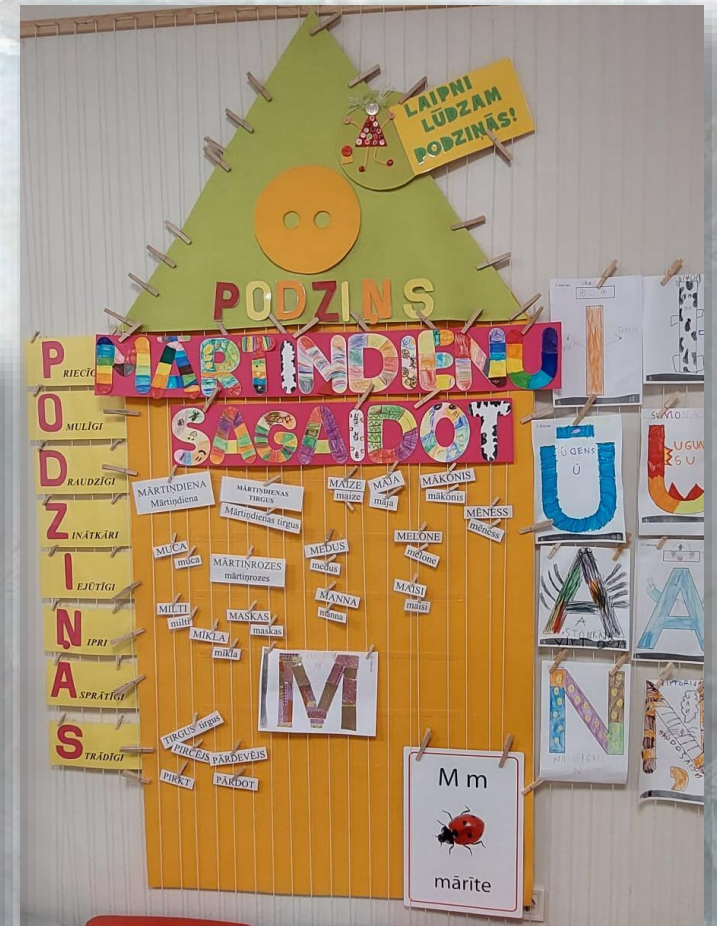 LAIPNI
LŪDZAM
PODZIŅĀS!
PODZIŅŅS
MĀRTIŅDIENU
SAGAIDOT
PRIECĪGI
OMULĪGI
DRAUDZĪGI
ZINĀTKĀRI
IEJŪTĪGI
ŅIPRI
ASPRĀTĪGI
STRĀDĪGI
MĀRTIŅDIENA
Mārtiņdiena
MĀRTIŅDIENAS
TIRGUS
Mārtiņdienas tirgus
MAIZE
maize
MĀJA
māja
MĀKONIS
mākonis
MĒNESS
mēness
MUCA
muca
MĀRTIŅROZES
mārtiņrozes
MEDUS
medus
MELONE
melone
MILTI
milti
MĪKLA
mīkla
MASKAS
maskas
MANNA
manna
MAISI
maisi
M
TIRGUS tirgus
PIRCĒJS
PĀRDEVĒJS
PIRKT
PĀRDOT
M m
mārīte
I
I
Ū
ŪDENS
Ū
U
UGUN
A
A
A
N
N